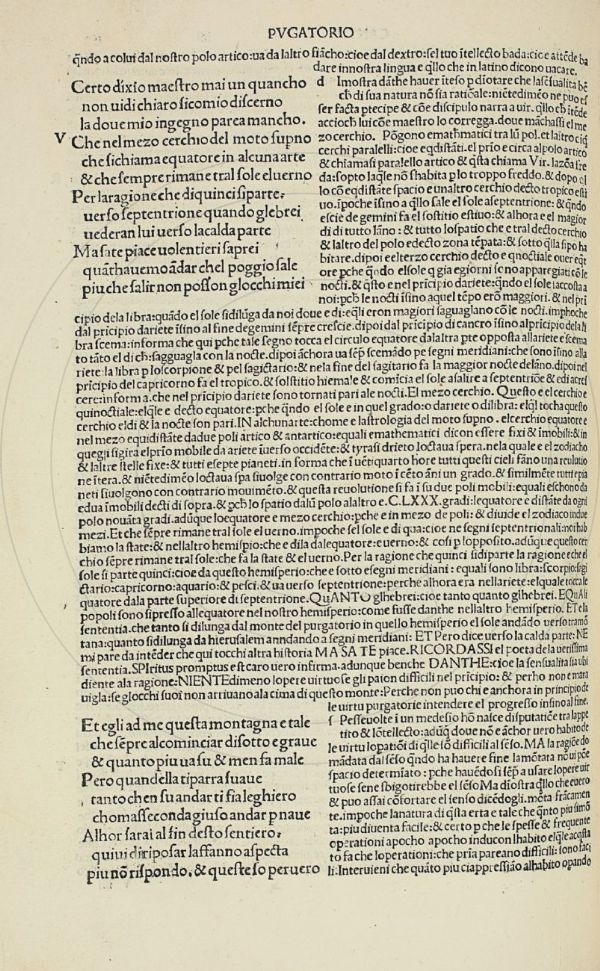 PVGATORIO
qñdo a colui dal nostro polo artico:ua da laltro fiācho:cioe dal dextro:sel tuo ītellecto bada:cice attēde ba
dare innostra lingua e qllo che in latino dicono uacare.
Certo dixio maestro mai un quancho
non uidi chiaro sicomio discerno
la doue mio ingegno parea mancho.
V Che nel mezo cerchio del moto supno
che sichiama equatore in alcuna arte
& che sempre rimane tral sole eluerno
Per la ragione che di quinci si parte:
uerso septentrione quando glebrei
uederan lui uerso la calda parte
Ma sa te piace uolentieri saprei
quāthauemo ādar chel poggio sale
piu che salir non posson glocchi miei
d Imostra dāthe hauer iteso p diotare che la sēsualita bē
ch di sua natura nō sia ratiōale: niētedimēo ne puo es
ser facta ptecipe & cōe discipulo narra a uir. qllo ch itēde
accioch lui cōe maestro lo corregga. doue māchassi el me
zo cerchio. Pōgono emathmatici tra lu pol. et laltro ciq
cerchi paralleli: cioe eqdistāti. el prio e circa al polo artico
& chiamasi paralello artico & qsta chiama Vir. lazōa fre
da: sopto laqle nō shabita p lo troppo freddo. & dopo el
lo cō eqdistāte spacio e unaltro cerchio decto tropico esti
uo. ipoche isino a qllo sale el sole a septentrione: & qñdo
escie de gemini fa el sostitio estiuo: & alhora e el magior
di di tutto lāno: & tutto lo spatio che e tral decto cerchio
& laltro del polo e decto zona tēpata: & sotto qlla sipo ha
bitare. dipoi e el terzo cerchio decto eqnoctiale ouer eqt
ore pche qñdo el sole q gia egiorni seno appargiati cō le
nocti. & qsto e nel pricipio dariete: qñdo el sole saccosta a
noi: pch le nocti isino aquel tēpo erō maggiori. & nel pri
cipio dela libra: quādo el sole sidiluga da noi doue e di: eqli eron magiori saguaglano cō le nocti. imphoche
dal pricipio dariete isino al fine degemini sēpre crescie. dipoi dal pricipio di cancro isino alpricipio dela li
bra scema: in forma che qui pche tale segno tocca el circulo equatore dalaltra pte opposita allariete e scema
to tāto el di ch: sagguagla con la nocte. dipoi āchora ua sēp scemādo pe segni meridiani: che sono isino alla
riete: la libra p lo scorpione & pel sagictario: & nela fine del sagitario fa la maggior nocte delāno. dipoi nel
pricipio del capricorno fa el tropico. & solstitio hiemale & comicia el sole a salire a septentriōe & edi a cref
cere: in forma. che nel pricipio dariete sono tornati pari ale nocti. El mezo cerchio. Questo e el cerchio e
quinoctiale: elqle e decto equatore: pche qñdo el sole e in quel grado: o dariete o dilibra: elql tocha questo
cerchio eldi & la nocte son pari. IN alchun arte: chome e lastrologia del moto supno. el cerchio equatore e
nel mezo equidistāte da due poli artico & antartico: equali emathematici dicon essere fixi & imobili: & in
quegli sigira el prio mobile da ariete iuerso occidēte: & tyrasi drieto loctaua spera. nela quale e el zodiacho
& laltre stelle fixe: & tutti esepte pianeti. in forma che i uētiquatro hore tutti questi cieli fāno una reuolutio
ne itera. & niētedimēo loctaua spa siuolge con contrario moto i cēto āni un grado. & similmēte tutti epia
neti siuolgono con contrario mouimēto. & questa reuolutione si fa i su due poli mobili: equali eschono da
e dua imobili decti di sopra. & pch lo spatio dalu polo alaltro e. C. LXXX. gradi: lequatore e distāte da ogni
polo nouāta gradi. adūque loequatore e mezo cerchio: pche e in mezo de poli: & diuide el zodiaco indue
mezi. Et che sēpre rimane tral sole el uerno. impoche sel sole e di qua: cioe ne segni septentrionali: noi hab
biamo la state: & nellaltro hemisprio: che e di la dalequatore: e uerno: & cosi p lopposito. adūque questo cer
chio sēpre rimane tral sole: che fa la state & el uerno. Per la ragione che quinci sidiparte la ragione e che el
sole si parte quinci: cioe da questo hemisperio: che e sotto esegni meridiani: equali sono libra: scorpio: sagi
ctario: capricorno: aquario: & pesci. & ua uerso septentrione: perche alhora era nellariete: elquale tocca le
quatore dala parte superiore di septentrione. QuANTO glhebrei: cioe tanto quanto glhebrei. EQuAli
popoli sono sipresso allequatore nel nostro hemisperio: come fusse danthe nellaltro hemisperio. ET e la
sententia. che tanto si dilunga dal monte del purgatorio in quello hemisperio el sole andādo uerso tramō
tana: quanto sidilunga da hierusalem anndando a segni meridiani: ET Pero dice uerso la calda parte: NE
mi pare da intēder che qui tocchi altra historia MA SA TE piace. RICORDASSI el poeta de la uerissima
sententia. SPIritus promptus est caro uero infirma. adunque benche DANTHE: cioe la sensualita sia ubi
diente ala ragione: NIENTEdimeno lopere uirtuose gli paion difficili nel pricipio: & perho non e mara
uigla: se glocchi suoi non arriuano ala cima di questo monte: Perche non puo chi e anchora in principio de
le uirtu purgatorie intendere el progresso infino al fine.
Et egli ad me questa montagna e tale
che sēpre al cominciar disotto e graue
& quanto piu ua su & men fa male
Pero quandella ti parra suaue
tanto chen su andar ti fia leghiero
chom a seconda giuso andar p naue
Alhor sarai al fin desto sentiero.
quiui di riposar laffanno aspecta
piu nō rispondo. & questo so per uero
s Pesseuolte i un medesio hō naice disputatiōe tra lappe
tito & lōtellecto: adūq doue nō e āchor uero habito de
le uirtu lopatiōi di qlle si difficili al sēso. MA la ragiōe do
mādata dal sēso qñdo ha hauere fine la mōtata nō ui pōe
spacio determiato: pche hauēdosi sēp a usare lopere uir
tuose sene sbigotirebbe el sēso Ma diostra qllo che uero
& puo assai cōfortare el senso dicēdogli. mōta frācamen
te. impoche la natura di qsta erta e tale che qñto piu simō
ta: piu diuenta facile: & certo p che le spesse & frequente
operationi apocho apocho inducon lhabito elqle acqsta
to fa che loperationi: che pria pareano difficili: sono faci
li. Interuieni che quāto piu ciappressiāo alhabito opando